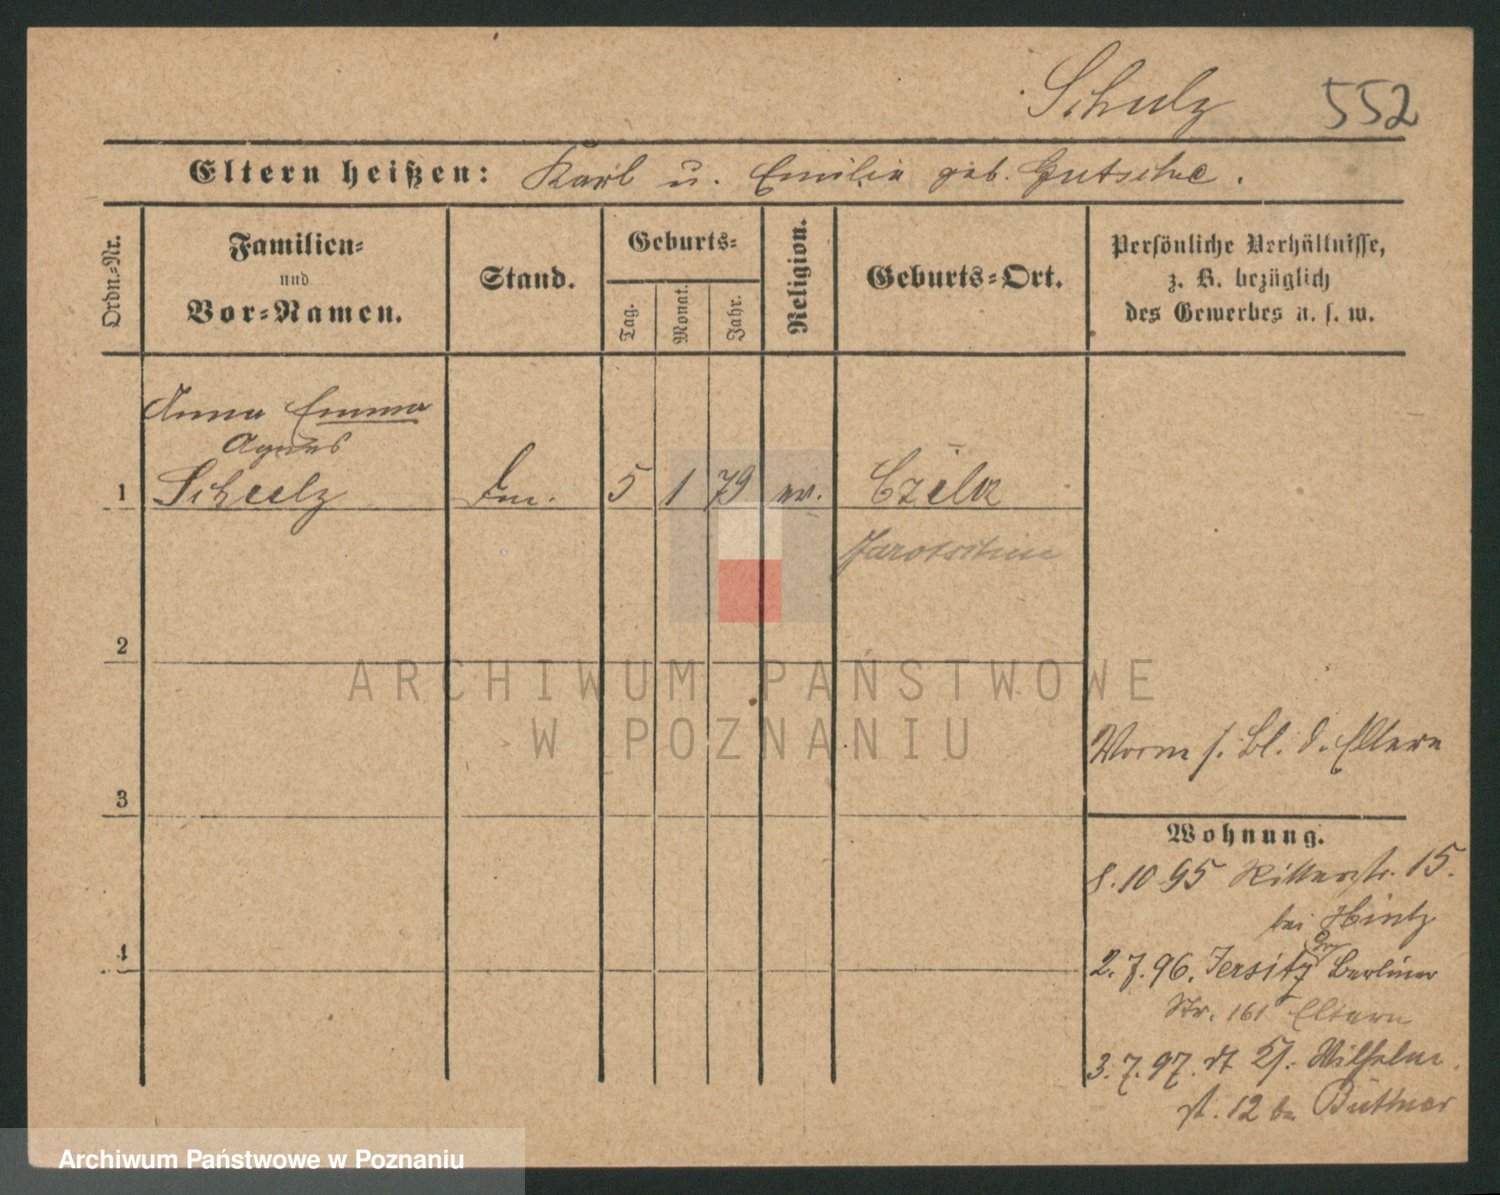 Schulz 552
Eltern heißen: Karl u. Emilie geb. Gutsche.
Ordn.-Nr.
Familien-
und
Vor-Namen.
Stand.
Geburts-
Tag.
Monat.
Jahr.
Religion.
Geburts-Ort.
Persönliche Verhältnisse,
z. B. bezüglich
des Gewerbes u. s. w.
Anna Emma
Agnes
1 Schulz 5 1 79 ev.
Jarotschin
2
ARCHIWUM PAŃSTWOWE
W POZNANIU
s. Bl. d. Eltern
3
Wohnung.
8.10 95 Ritterstr. 15.
bei Hintz
4
2.7.96. Jersitz Berliner
Str. 161 Eltern
3.7.97. Wilhelm
st. 12 bei Büttner
Archiwum Państwowe w Poznaniu